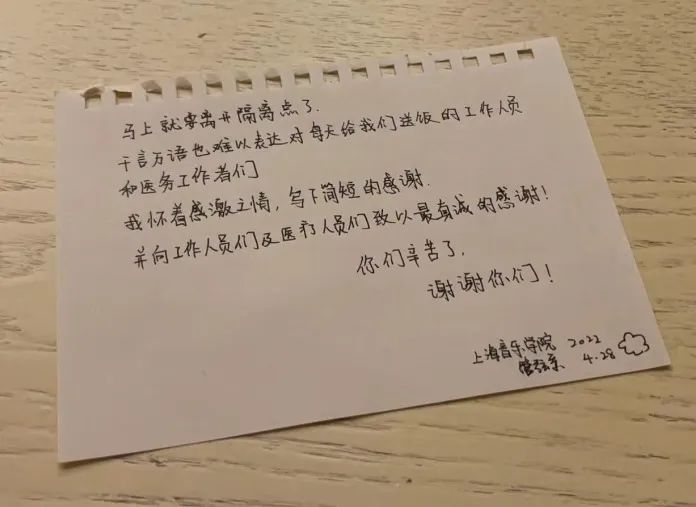 马上就要离开隔离点了.
千言万语也难以表达对每天给我们送饭的工作人员
和医务工作者们
我怀着感激之情,写下简短的感谢.
并向工作人员们及医疗人员们致以最真诚的感谢!
你们辛苦了,
谢谢你们!
上海音乐学院 2022
管弦系 4.28